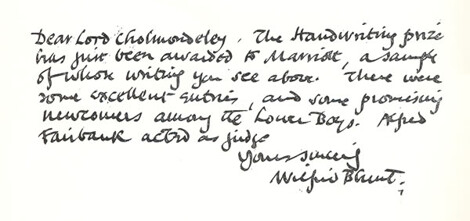 Dear Lord Cholmondeley. The Handwriting prize
has just been awarded to Marriott, a sample
of whose writing you see above. There were
some excellent entries, and some promising
newcomers among the Lower Boys. Alfred
Fairbank acted as judge
Yours sincerely
Wilfrid Blunt.